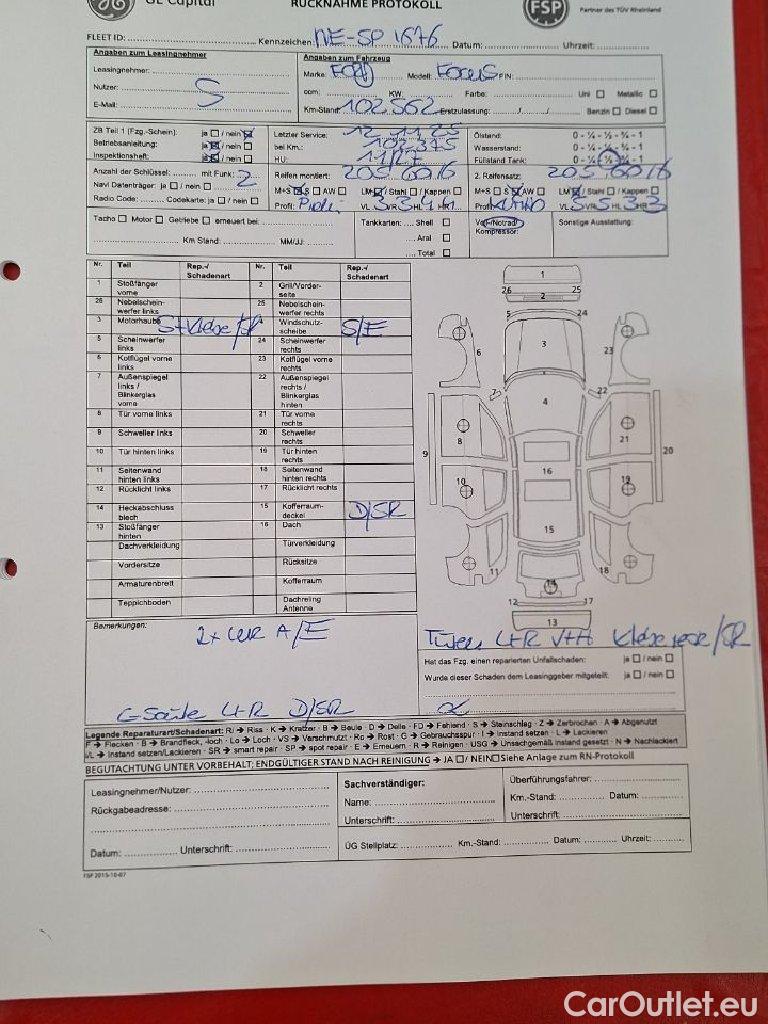 GE Capital
RÜCKNAHME PROTOKOLL
FSP
Partner des TÜV Rheinland
FLEET ID: Kennzeichen: NE-SP 1676 Datum: Uhrzeit:
Angaben zum Leasingnehmer
Leasingnehmer:
Nutzer: S
E-Mail:
Angaben zum Fahrzeug
Marke Ford Modell: Focus FIN:
com: KW: Farbe: Uni ☐ Metallic ☐
Km-Stand: 102.562 Erstzulassung: Benzin ☐ Diesel ☐
ZB Teil 1 (Fzg.-Schein): ja ☐ / nein ☒
Betriebsanleitung: ja ☒ / nein ☐
Inspektionsheft: ja ☒ / nein ☐
Letzter Service: 12.11.25
bei Km.: 102.375
HU: 11/27
Ölstand: 0 - ¼ - ½ - ¾ - 1
Wasserstand: 0 - ¼ - ½ - ¾ - 1
Füllstand Tank: 0 - ¼ - ½ - ¾ - 1
Anzahl der Schlüssel: mit Funk: 2
Navi Datenträger: ja ☐ / nein ☐
Radio Code: Codekarte: ja ☐ / nein ☐
Reifen montiert: 205 60 16
M+S ☒ S ☐ AW ☐ LM ☒ / Stahl ☐ / Kappen ☐
Profil: VL 3 VR 3 HL 4 HR
2. Reifensatz: 205 60 16
M+S ☐ S ☒ AW ☐ LM ☒ / Stahl ☐ / Kappen ☐
Profil: VL 5 VR 5 HL 3 HR 3
Tacho ☐ Motor ☐ Getriebe ☐ erneuert bei:
Km Stand: MM/JJ:
Tankkarten: Shell ☐
Aral ☐
Total ☐
Notrad/
Kompressor:
Sonstige Ausstattung:
Nr. Teil Rep.-/ Schadenart Nr. Teil Rep.-/ Schadenart
1 Stoßfänger vorne 2 Grill/Vorder-seite
26 Nebelschein-werfer links 25 Nebelschein-werfer rechts
3 Motorhaube Windschutz-scheibe S/E
5 Scheinwerfer links 24 Scheinwerfer rechts
6 Kotflügel vorne links 23 Kotflügel vorne rechts
7 Außenspiegel links / Blinkerglas vorne 22 Außenspiegel rechts / Blinkerglas hinten
8 Tür vorne links 21 Tür vorne rechts
9 Schweller links 20 Schweller rechts
10 Tür hinten links 19 Tür hinten rechts
11 Seitenwand hinten links 18 Seitenwand hinten rechts
12 Rücklicht links 17 Rücklicht rechts
14 Heckabschluss blech 15 Kofferraum-deckel D/SR
13 Stoßfänger hinten 16 Dach
Dachverkleidung Türverkleidung
Vordersitze Rücksitze
Armaturenbrett Kofferraum
Teppichboden Dachreling Antenne
1
26 25
2
5 24
3
6 23
7 22
4
8 21
9 20
16
10 19
15
11 18
14
12 17
13
Bemerkungen:
A/E
Türen L+R V+H
C-Säule L+R D/SR
Hat das Fzg. einen reparierten Unfallschaden: ja ☐ / nein ☐
Wurde dieser Schaden dem Leasinggeber mitgeteilt: ja ☐ / nein ☐
Legende Reparaturart/Schadenart: RI → Riss - K → Kratzer - B → Beule - D → Delle - FD → Fehlend - S → Steinschlag - Z → Zerbrochen - A → Abgenutzt
F → Flecken - B → Brandfleck, -loch - Lo → Loch - VS → Verschmutzt - Ro → Rost - G → Gebrauchsspur - I → Instand setzen - L → Lackieren
I/L → Instand setzen/Lackieren - SR → smart repair - SP → spot repair - E → Erneuern - R → Reinigen - USG → Unsachgemäß instand gesetzt - N → Nachlackiert
BEGUTACHTUNG UNTER VORBEHALT; ENDGÜLTIGER STAND NACH REINIGUNG → JA ☐ / NEIN ☐ Siehe Anlage zum RN-Protokoll
Leasingnehmer/Nutzer:
Rückgabeadresse:
Datum: Unterschrift:
Sachverständiger:
Name:
Unterschrift:
Überführungsfahrer:
Km.-Stand: Datum:
Unterschrift:
ÜG Stellplatz: Km.-Stand: Datum: Uhrzeit:
FSP 2015-10-07
CarOutlet.eu